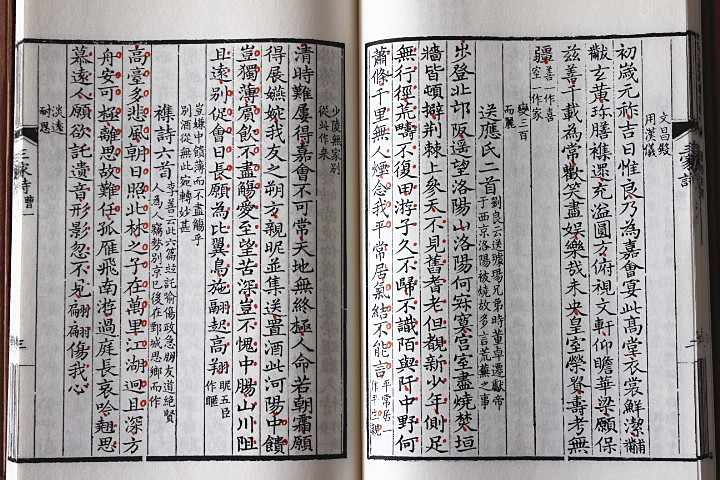 文昌殿
用漢儀
初歲元祚吉日惟良乃為嘉會宴此高堂衣裳鮮潔黼
黻玄黃珍膳襍還充溢圓方俯視文軒仰瞻華梁願保
茲善千載為常歡笑盡娛樂哉未央皇室榮貴壽考無
疆 善一作喜 室一作家
變三百
而麗
送應氏二首 劉良云送璩瑒兄弟時董卓遷獻帝
于西京洛陽被燒故多言荒蕪之事
步登北邙阪遙望洛陽山洛陽何寂寞宮室盡燒焚垣
牆皆頓擗荊棘上參天不見舊耆老但覩新少年側足
無行徑荒疇不復田游子久不歸不識陌與阡中野何
蕭條千里無人煙念我平常居氣結不能言 平常居一作平生親
少陵無家別
從此作來
清時難屢得嘉會不可常天地無終極人命若朝霜願
得展嬿婉我友之朔方親昵並集送置酒此河陽中饋
豈獨薄賓飲不盡觴愛至望苦深豈不愧中腸山川阻
且遠別促會日長願為比翼鳥施翮起高翔 昵五臣作暱
豈嫌中饋薄而不盡觴乎
別酒從無此宛轉妙甚
襍詩六首 李善云此六篇並託喻傷政急朋友道絕賢
人為人竊勢別京已後在鄄城思鄉而作
高臺多悲風朝日照北林之子在萬里江湖迥且深方
舟安可極離思故難任孤雁飛南游過庭長哀吟翹思
慕遠人願欲託遺音形影忽不見翩翩傷我心
淡遠
耐思
三家詩 曹一